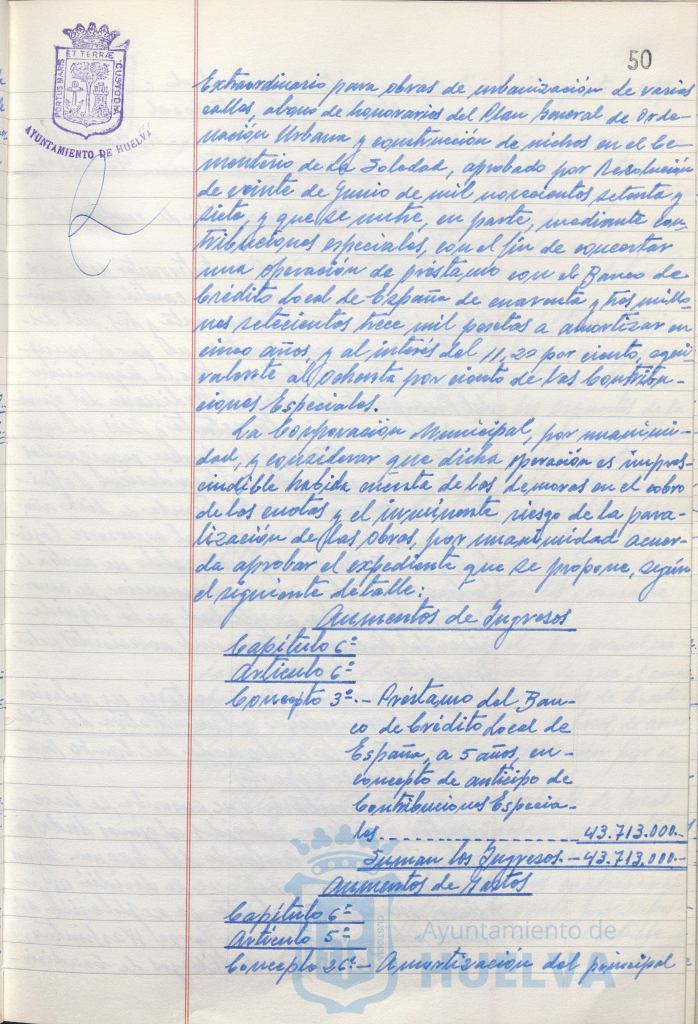 50
PORTUS MARIS ET TERRÆ CUSTODIA
AYUNTAMIENTO DE HUELVA
Extraordinario para obras de urbanización de varias
calles, abono de honorarios del Plan General de Orde-
nación Urbana y construcción de nichos en el Ce-
menterio de La Soledad, aprobado por Resolución
de veinte de Junio de mil novecientos setenta y
siete, y que se nutre, en parte, mediante con-
tribuciones especiales, con el fin de concertar
una operación de préstamo con el Banco de
Crédito Local de España de cuarenta y tres millo-
nes setecientos trece mil pesetas a amortizar en
cinco años, y al interés del 11,20 por ciento, equi-
valente al Ochenta por ciento de las Contribu-
ciones Especiales.
La Corporación Municipal, por unanimi-
dad, y considerar que dicha operación es impres-
cindible habida cuenta de las demoras en el cobro
de las cuotas y el inminente riesgo de la para-
lización de las obras, por unanimidad acuer-
da aprobar el expediente que se propone, según
el siguiente detalle:
Aumentos de Ingresos
Capítulo 6º
Artículo 6º
Concepto 3º.- Préstamo del Ban-
co de Crédito Local de
España, a 5 años, en
concepto de anticipo de
Contribuciones Especia-
les. - - - - - - - - - - 43.713.000.-
Suman los Ingresos.- 43.713.000.-
Aumentos de Gastos
Capítulo 6º
Artículo 5º
Concepto 26º.- Amortización del principal
CUSTODIA
Ayuntamiento de
HUELVA